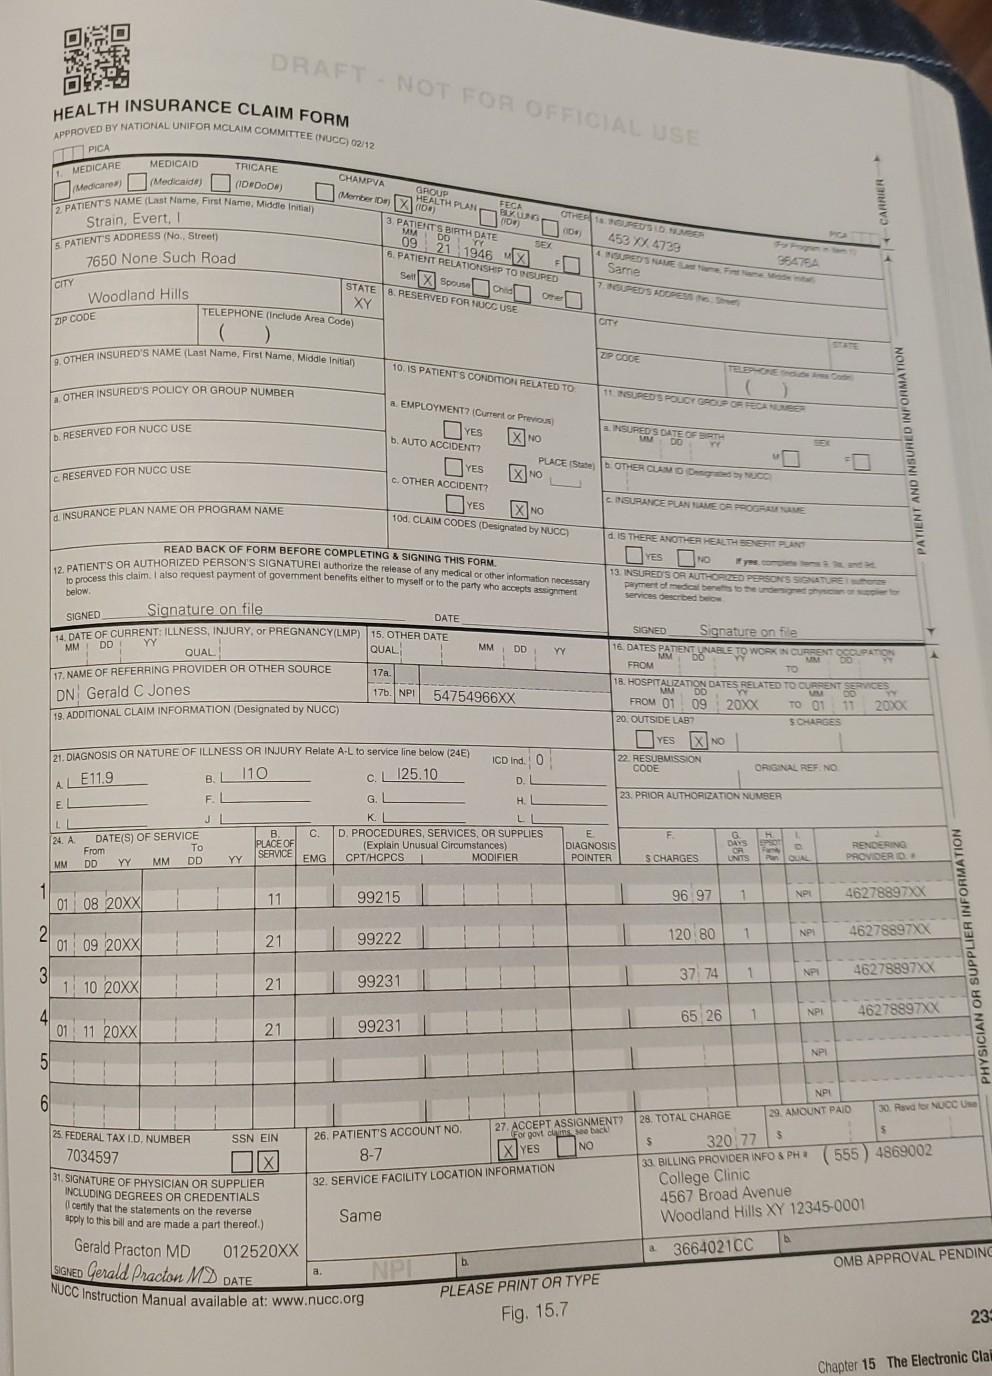 DRAFT - NOT FOR OFFICIAL USE
HEALTH INSURANCE CLAIM FORM
APPROVED BY NATIONAL UNIFOR MCLAIM COMMITTEE (NUCC) 02/12
PICA
PICA
CARRIER
1. MEDICARE MEDICAID TRICARE CHAMPVA GROUP HEALTH PLAN FECA BLK LUNG OTHER
(Medicare#) (Medicaid#) (ID#DoD#) (Member ID#) X (ID#) (ID#) (ID#)
1a. INSURED'S I.D. NUMBER (For Program in Item 1)
453 XX 4739 96476A
2. PATIENT'S NAME (Last Name, First Name, Middle Initial)
Strain, Evert, I
3. PATIENT'S BIRTH DATE SEX
MM DD YY
09 21 1946 M X F
4. INSURED'S NAME (Last Name, First Name, Middle Initial)
Same
5. PATIENT'S ADDRESS (No., Street)
7650 None Such Road
6. PATIENT RELATIONSHIP TO INSURED
Self X Spouse Child Other
7. INSURED'S ADDRESS (No., Street)
CITY STATE
Woodland Hills XY
8. RESERVED FOR NUCC USE
CITY STATE
ZIP CODE TELEPHONE (Include Area Code)
( )
ZIP CODE TELEPHONE (Include Area Code)
( )
9. OTHER INSURED'S NAME (Last Name, First Name, Middle Initial)
10. IS PATIENT'S CONDITION RELATED TO:
11. INSURED'S POLICY GROUP OR FECA NUMBER
a. OTHER INSURED'S POLICY OR GROUP NUMBER
a. EMPLOYMENT? (Current or Previous)
YES X NO
a. INSURED'S DATE OF BIRTH SEX
MM DD YY
M F
b. RESERVED FOR NUCC USE
b. AUTO ACCIDENT? PLACE (State)
YES X NO
b. OTHER CLAIM ID (Designated by NUCC)
c. RESERVED FOR NUCC USE
c. OTHER ACCIDENT?
YES X NO
c. INSURANCE PLAN NAME OR PROGRAM NAME
d. INSURANCE PLAN NAME OR PROGRAM NAME
10d. CLAIM CODES (Designated by NUCC)
d. IS THERE ANOTHER HEALTH BENEFIT PLAN?
YES NO If yes, complete items 9, 9a, and 9d.
PATIENT AND INSURED INFORMATION
READ BACK OF FORM BEFORE COMPLETING & SIGNING THIS FORM.
12. PATIENT'S OR AUTHORIZED PERSON'S SIGNATUREI authorize the release of any medical or other information necessary
to process this claim. I also request payment of government benefits either to myself or to the party who accepts assignment
below.
SIGNED Signature on file DATE
13. INSURED'S OR AUTHORIZED PERSON'S SIGNATURE I authorize
payment of medical benefits to the undersigned physician or supplier for
services described below.
SIGNED Signature on file
14. DATE OF CURRENT: ILLNESS, INJURY, or PREGNANCY(LMP)
MM DD YY QUAL.
15. OTHER DATE
QUAL. MM DD YY
16. DATES PATIENT UNABLE TO WORK IN CURRENT OCCUPATION
MM DD YY MM DD YY
FROM TO
17. NAME OF REFERRING PROVIDER OR OTHER SOURCE
DN Gerald C Jones
17a.
17b. NPI 54754966XX
18. HOSPITALIZATION DATES RELATED TO CURRENT SERVICES
MM DD YY MM DD YY
FROM 01 09 20XX TO 01 11 20XX
19. ADDITIONAL CLAIM INFORMATION (Designated by NUCC)
20. OUTSIDE LAB? $ CHARGES
YES X NO
21. DIAGNOSIS OR NATURE OF ILLNESS OR INJURY Relate A-L to service line below (24E) ICD Ind. 0
A. E11.9 B. I10 C. I25.10 D.
E. F. G. H.
I. J K. L.
22. RESUBMISSION CODE ORIGINAL REF. NO.
23. PRIOR AUTHORIZATION NUMBER
24. A. DATE(S) OF SERVICE B. C. D. PROCEDURES, SERVICES, OR SUPPLIES E. F. G. H. I. J.
From To PLACE OF (Explain Unusual Circumstances) DIAGNOSIS DAYS OR EPSDT Family ID. RENDERING
MM DD YY MM DD YY SERVICE EMG CPT/HCPCS MODIFIER POINTER $ CHARGES UNITS Plan QUAL. PROVIDER ID. #
1 01 08 20XX 11 99215 96 97 1 NPI 46278897XX
2 01 09 20XX 21 99222 120 80 1 NPI 46278897XX
3 1 10 20XX 21 99231 37 74 1 NPI 46278897XX
4 01 11 20XX 21 99231 65 26 1 NPI 46278897XX
5 NPI
6 NPI
PHYSICIAN OR SUPPLIER INFORMATION
25. FEDERAL TAX I.D. NUMBER SSN EIN
7034597 X
26. PATIENT'S ACCOUNT NO.
8-7
27. ACCEPT ASSIGNMENT?
(For govt. claims, see back)
X YES NO
28. TOTAL CHARGE
$ 320 77
29. AMOUNT PAID
$
30. Rsvd for NUCC Use
$
31. SIGNATURE OF PHYSICIAN OR SUPPLIER
INCLUDING DEGREES OR CREDENTIALS
(I certify that the statements on the reverse
apply to this bill and are made a part thereof.)
Gerald Practon MD 012520XX
SIGNED Gerald Practon MD DATE
32. SERVICE FACILITY LOCATION INFORMATION
Same
a. NPI b.
33. BILLING PROVIDER INFO & PH # (555) 4869002
College Clinic
4567 Broad Avenue
Woodland Hills XY 12345-0001
a. 3664021CC b.
NUCC Instruction Manual available at: www.nucc.org
PLEASE PRINT OR TYPE
OMB APPROVAL PENDING
Fig. 15.7
Chapter 15 The Electronic